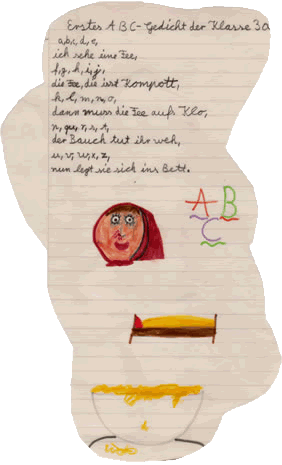 Erstes ABC-Gedicht der Klasse 3a
a, b, c, d, e,
ich sehe eine Fee,
f, g, h, i, j,
die Fee, die isst Kompott,
k, l, m, n, o,
dann muss die Fee aufs Klo,
p, qu, r, s, t,
der Bauch tut ihr weh,
u, v, w, x, z,
nun legt sie sich ins Bett.
A B
C